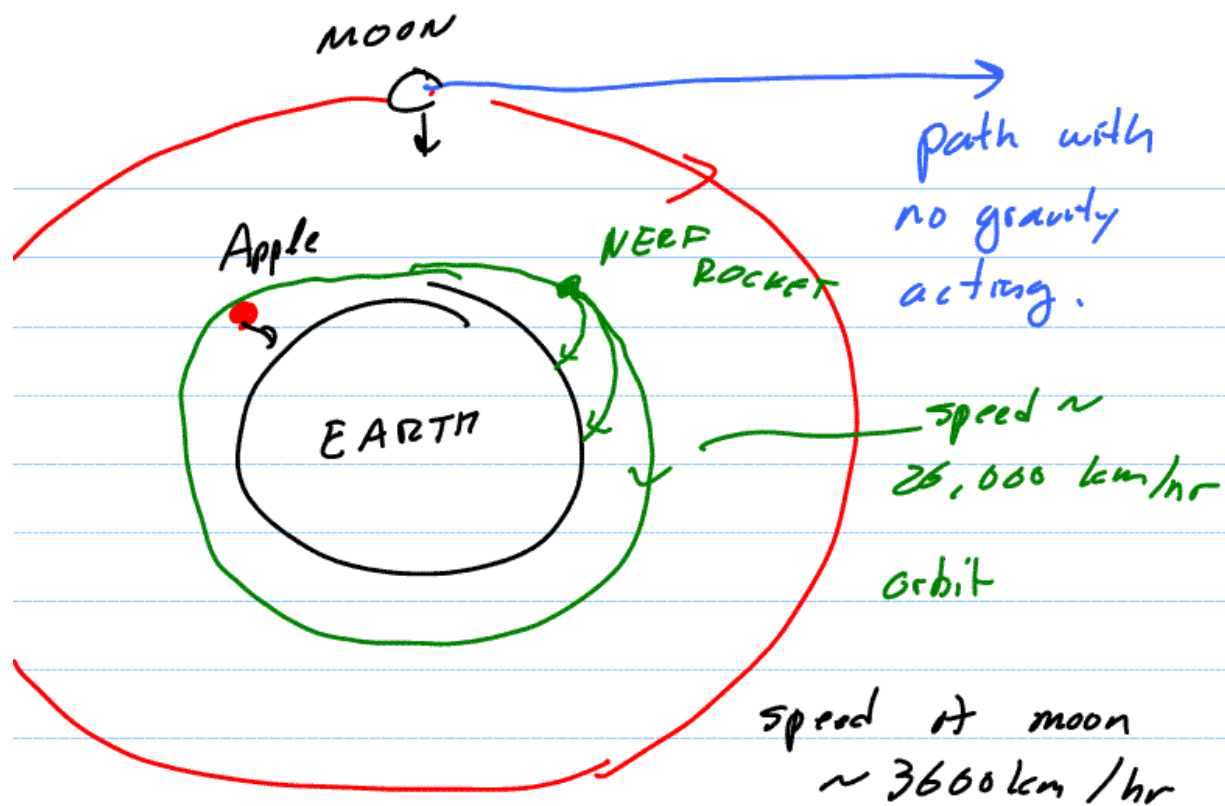 MOON
path with
no gravity
acting.
Apple
NERF
ROCKET
EARTH
speed ~
26,000 km/hr
orbit
speed of moon
~ 3600 km/hr